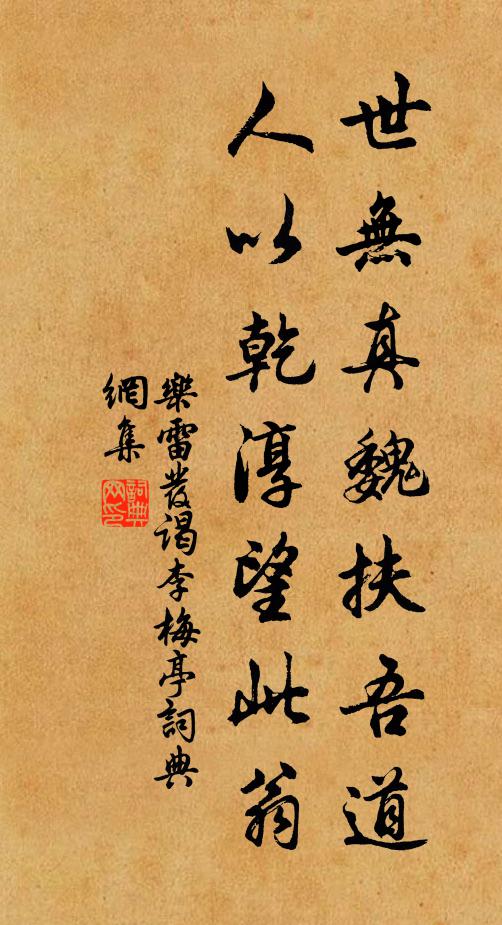 世無真魏扶吾道
人以乾淳望此翁
樂雷發謁李梅亭詞典
網集
詞典
网印